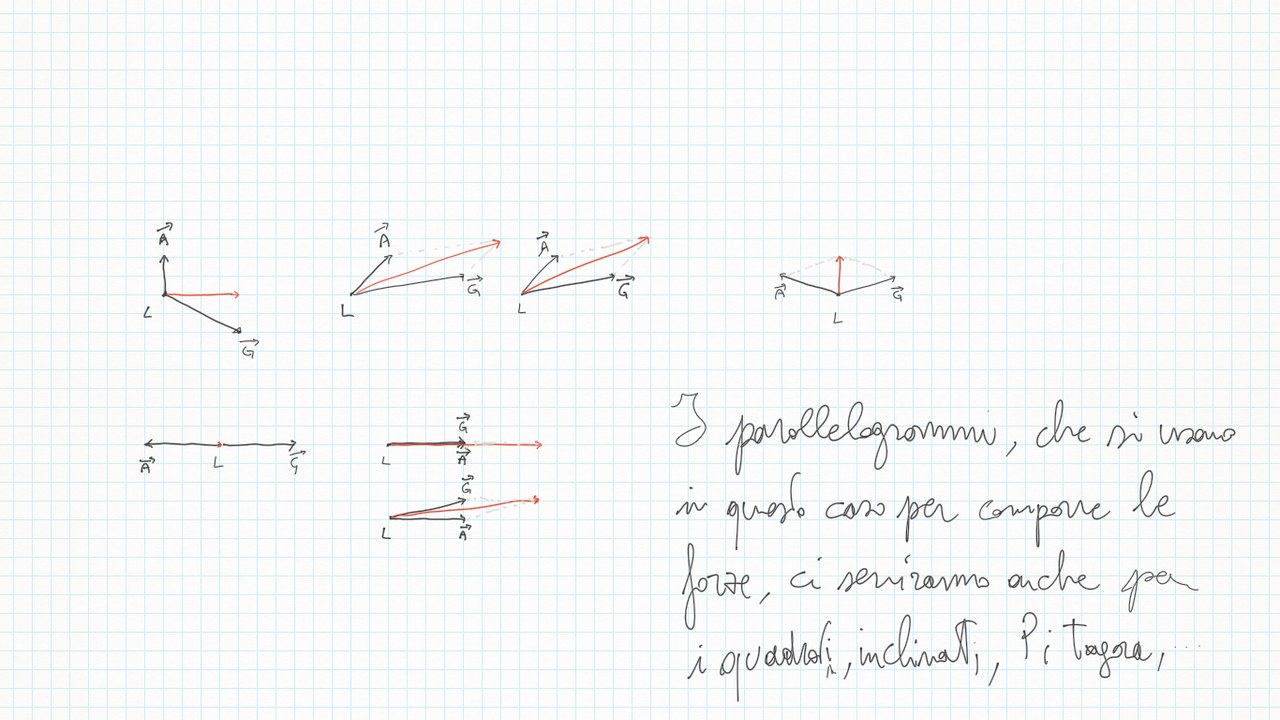 A
L
G
A
L
G
A
L
G
A
G
L
A
L
G
L
G
A
L
G
A
I parallelogrammi, che si usano
in questo caso per comporre le
forze, ci serviranno anche per
i quadrati, inclinati, Pitagora, ...